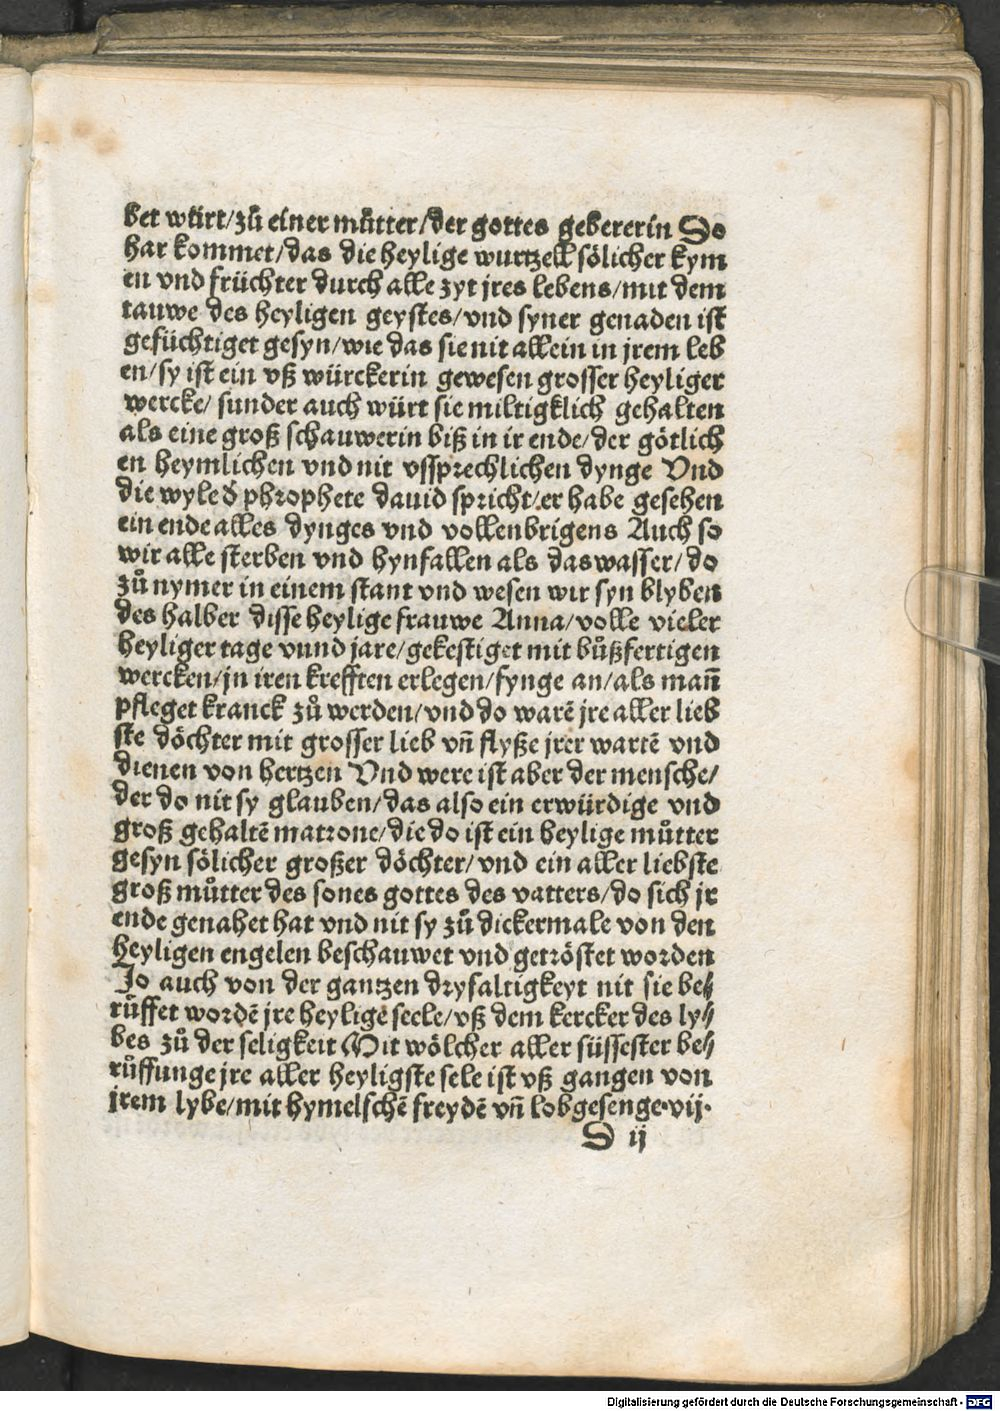 bet würt/zů einer můtter/der gottes gebererin So
har kommet/das die heylige wurtzell sölicher kym
en vnd früchter durch alle zyt jres lebens/mit dem
tauwe des heyligen geystes/vnd syner genaden ist
gefüchtiget gesyn/wie das sie nit allein in jrem leb
en/sy ist ein vß würckerin gewesen grosser heyliger
wercke/ sunder auch würt sie miltigklich gehalten
als eine groß schauwerin biß in ir ende/der götlich
en heymlichen vnd nit vssprechlichen dynge Vnd
die wyle d̕ phrophete dauid spricht/er habe gesehen
ein ende alles dynges vnd vollenbrigens Auch so
wir alle sterben vnd hynfallen als das wasser/do
zů nymer in einem stant vnd wesen wir syn blyben
des halber disse heylige frauwe Anna/volle vieler
heyliger tage vnnd jare/gekestiget mit bůßfertigen
wercken/jn iren krefften erlegen/fynge an/als mañ
pfleget kranck zů werden/vnd do warē jre aller lieb
ste döchter mit grosser lieb vñ flyße jrer wartē vnd
dienen von hertzen Vnd were ist aber der mensche/
der do nit sy glauben/das also ein erwürdige vnd
groß gehaltē matrone/die do ist ein heylige můtter
gesyn sölicher großer döchter/vnd ein aller liebste
groß můtter des sones gottes des vatters/do sich jr
ende genahet hat vnd nit sy zů dickermale von den
heyligen engelen beschauwet vnd getröstet worden
Jo auch von der gantzen dryfaltigkeyt nit sie be⸗
růffet wordē jre heyligē seele/vß dem kercker des ly⸗
bes zů der seligkeit Mit wölcher aller süssester be⸗
růffunge jre aller heyligste sele ist vß gangen von
jrem lybe/mit hymelschē freydē vñ lobgesenge·vij·
D ij
Digitalisierung gefördert durch die Deutsche Forschungsgemeinschaft - DFG